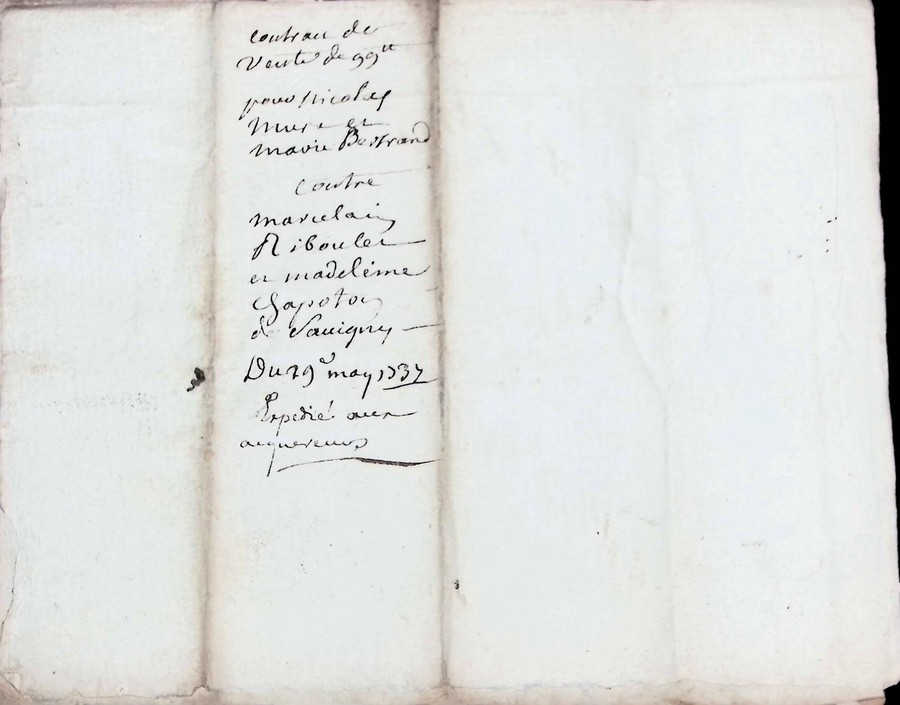 contrat de
Vente de 99ᵗᵗ
pour Nicolas
Mure et
marie Bertrand
contre
marcelain
Riboulet
et madeleine
Chapoton
de Sauigny
Du 29ᵉ may 1737
Expedié aux
acquereurs